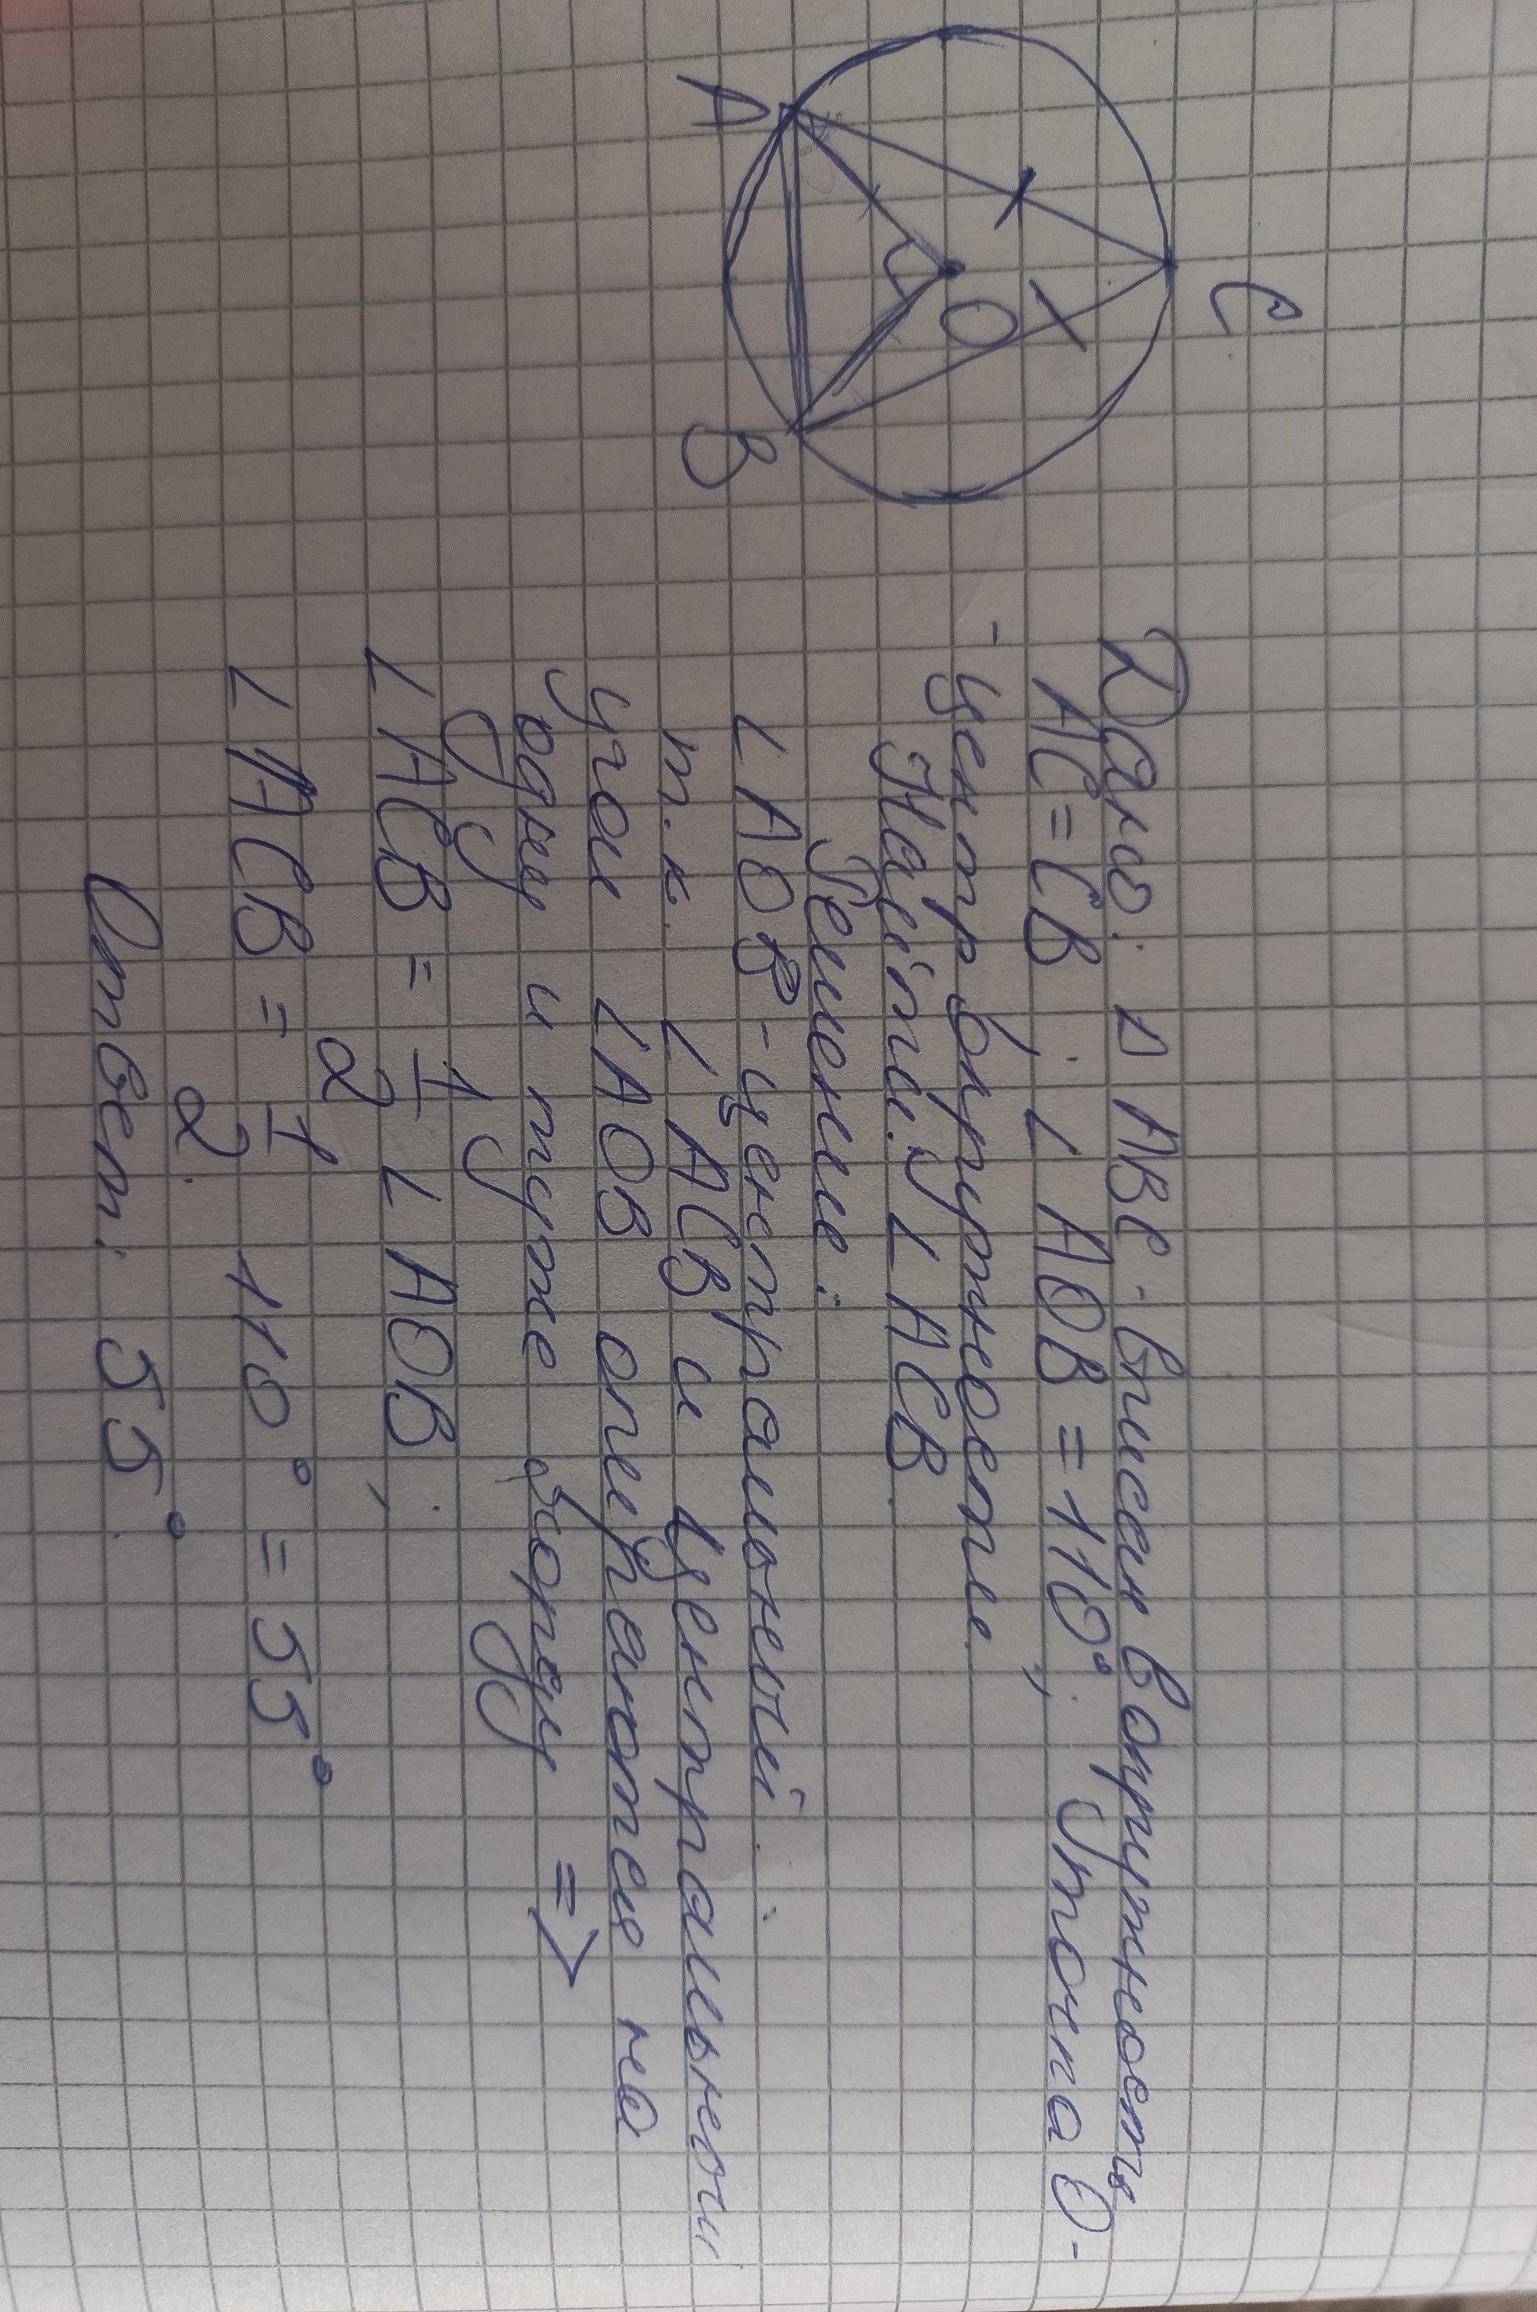 C
O
A
B
Дано: △ ABC - вписан в окружность
AC = CB; ∠ AOB = 110°; точка O -
- центр окружности.
Найти: ∠ ACB.
Решение:
∠ AOB - центральный.
т.к. ∠ ACB и центральный
угол ∠AOB опираются на
одну и туже хорду =>
∠ ACB = 1/2 ∠ AOB;
∠ ACB = 1/2 · 110° = 55°
Ответ: 55°.